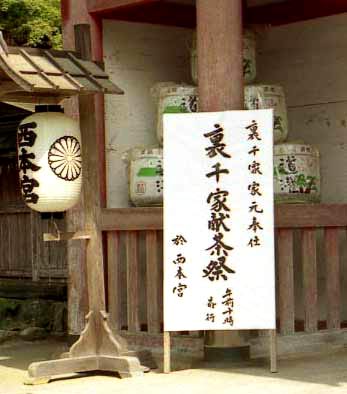 裏千家家元奉仕
裏千家献茶祭
於西本宮
午前十時
斎行
西本宮